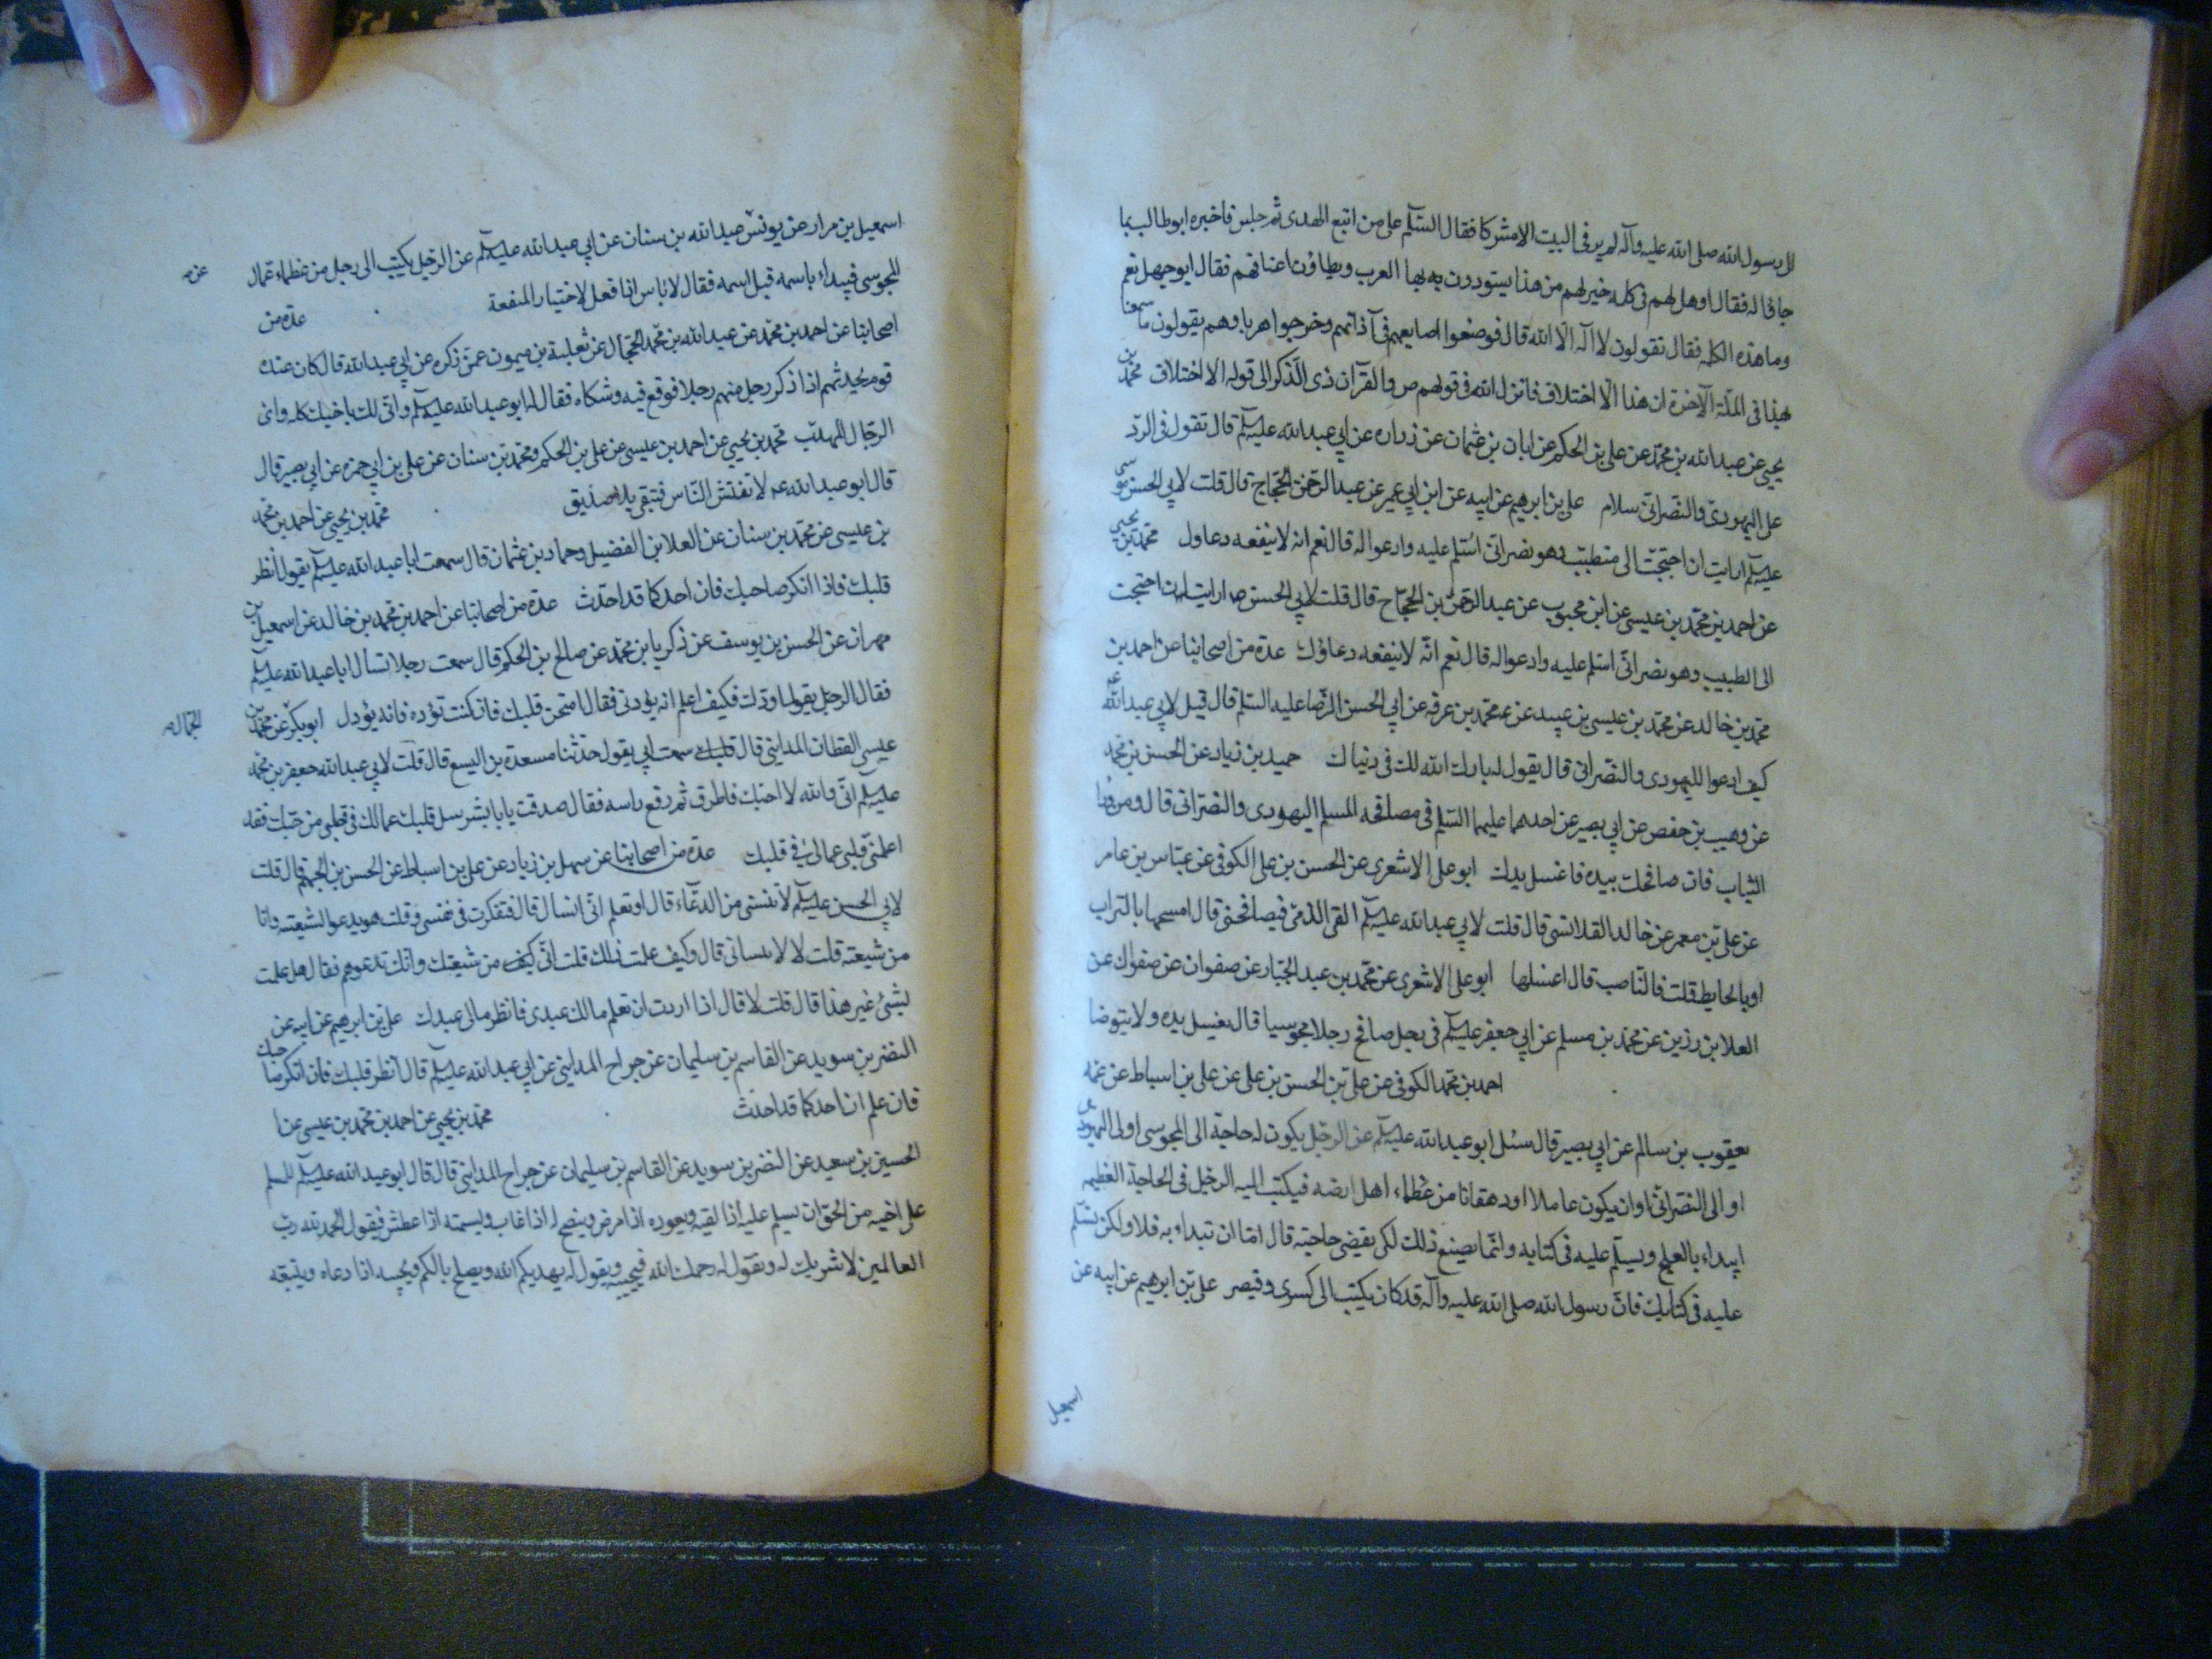 لل رسول الله صلى الله عليه وآله لم ير فى البيت الا مشركا فقال السّلم على من اتبع الهدى ثم جلس فاخبره ابوطالب بما
جاؤا له فقال او هل لهم فى كلمه خير لهم من هذا يسودون به بها العرب ويطاؤن اعناقهم فقال ابوجهل نعم
وما هذه الكلمه فقال تقولون لا اله الّا الله قال فوضعوا اصابعهم فى آذانهم وخرجوا هربا وهم يقولون ما سمعنا
بهذا فى الملّة الآخرة ان هذا الّا اختلاق فانزل الله فى قولهم ص والقرآن ذى الذكر الى قوله الا اختلاق محمد بن
يحيى عن عبدالله بن محمّد عن على بن الحكم عن ابان بن عثمان عن زراره عن ابى عبدالله عليه السلم قال تقول فى الردّ
على اليهودىّ والنصرانىّ سلام على بن ابرهيم عن ابيه عن ابن ابى عمير عن عبد الرحمن الحجّاج قال قلت لابى الحسن موسى
عليه السلم ارايت ان احتجت الى متطبّب وهو نصرانى اسلّم عليه وادعوا له قال نعم انه لا ينفعه دعاول محمّد بن يحيى
عن احمد بن محمّد بن عيسى عن ابن محبوب عن عبدالرحمن بن الحجاج قال قلت لابى الحسن ص ارايت ان احتجت
الى الطبيب وهو نصرانىّ اسلم عليه وادعوا له قال نعم انّه لا ينفعه دعاؤك عدة من اصحابنا عن احمد بن
محمّد بن خالد عن محمّد بن عيسى بن عبيد عن محمّد بن عرفه عن ابى الحسن الرّضا عليه السّلم قال قيل لابى عبدالله عم
كيف ادعوا لليهودى والنصّرانى قال يقول له بارك الله لك فى دنياك حميد بن زياد عن الحسن بن محمد
عن وهيب بن حفص عن ابى بصير عن احدهما عليهما السّلم فى مصافحه المسلم اليهودى والنصّرانى قال ومن ورا
الثياب فان صافحك بيده فاغسل يدك ابوعلى الاشعرى عن الحسن بن على الكوفى عن عبّاس بن عامر
عن علىّ بن معمر عن خالد القلانسّى قال قلت لابى عبدالله عليه السلم القى الذمّى فيصافحنى قال امسحها بالتراب
او بالحايط قلت فالنّاصب قال اغسلها ابوعلى الاشعرى عن محمّد بن عبد الجبّار عن صفوان عن صفوان عن
العلا بن رزين عن محمّد بن مسلم عن ابى جعفر عليه السلم فى رجل صافح رجلا مجوسيا قال يغسل يده ولا يتوضا
احمد بن محمد الكوفى عن على بن الحسن بن على عن على بن اسباط عن عمّه
يعقوب بن سالم عن ابى بصير قال سئل ابوعبدالله عليه السلم عن الرجّل يكون له حاجة الى المجوسى او الى اليهودى
او الى النصّرانىّ او ان يكون عاملا او دهقانا من عظماء اهل ارضه فيكتب اليه الرجّل فى الحاجة العظيمه
ايبداء بالعلج ويسلّم عليه فى كتابه وانّما يصنع ذلك لكى يقضى حاجته قال امّا ان تبداء به فلا ولكن تسلّم
عليه فى كتابك فانّ رسول الله صلى الله عليه وآله قد كان يكتب الى كسرى وقيصر على بن ابرهيم عن ابيه عن
اسمعيل
اسمعيل بن مرار عن يونس عبدالله بن سنان عن ابى عبدالله عليه السلم عن الرجّل يكتب الى رجل من عظماء عمال
عن م
المجوسى فيبداء باسمه قبل اسمه فقال لا باس اذا فعل لاختيار المنفعة عدة من
اصحابنا عن احمد بن محمّد عن عبدالله بن محمّد الحجّال عن ثعلبة بن ميمون عمّن ذكره عن ابى عبدالله قال كان عنده
قوم يحدثهم اذا ذكر رجل منهم رجلا فوقع فيه وشكاه فقال له ابوعبدالله عليه السلم وانّى لك باخيك كله واىّ
الرجّال المهذّب محمّد بن يحيى عن احمد بن عيسى عن على بن الحكم ومحمّد بن سنان عن على بن ابى حمزه عن ابى بصير قال
قال ابوعبدالله عم لا تفتش النّاس فتبقى بلا صديق محمّد بن يحيى عن احمد بن محمد
بن عيسى عن محمّد بن سنان عن العلا بن الفضيل وحماد بن عثمان قال سمعت اباعبدالله عليه السلم يقول انظر
قلبك فاذا انكر صاحبك فان احدكما قد احدث عدة من اصحابنا عن احمد بن محمّد بن خالد عن اسمعيل بن
مهران عن الحسن بن يوسف عن زكريا بن محمّد عن صالح بن الحكم قال سمعت رجلا تسأل اباعبدالله عليه السلم
فقال الرجّل يقول اودّك فكيف اعلم انه يودنى فقال امتحن قلبك فان كنت تودّه فانه يودك ابوبكر عن محمّد بن
الجمال م
عيسى القطان المداينى قال سمعت ابى يقول حدّثنا مسعدة بن اليسع قال قلت لابى عبدالله جعفر بن محمّد
عليه السلم انّى والله لا احبك فاطرق ثم رفع راسه فقال صدقت يا ابا بشر سل قلبك عما لك فى قلبى من حبّك فقد
اعلمنى قلبى عمالى فى قلبك عدة من اصحابنا عن سهل بن زياد عن على بن اسباط عن الحسن بن الجهم قال قلت
لابى الحسن عليه السلم لا تنسنى من الدعّاء قال اوتعلم انّى انسال قال فتفكرت فى نفسى وقلت هو يدعوا لشيعته وانا
من شيعته قلت لا لا تنسانى قال وكيف علمت ذلك قلت انّى كيف من شيعتك وانك تدعوهم فقال هل علمت
لشئ غير هذا قال قلت لا قال اذا اردت ان تعلم مالك عبدى فانظر مالى عبدك على بن ابرهيم عن ابيه عن
النضر بن سويد عن القاسم بن سليمان عن جراح المداينى عن ابى عبدالله عليه السلم قال انظر قلبك فان انكر صاحبك
فان علم ان احدكما قد احدث محمّد بن يحيى عن احمد بن محمّد بن عيسى عن ا
الحسين بن سعيد عن النضر بن سويد عن القاسم بن سليمان عن جراح المداينى قال قال ابوعبدالله عليه السلم للمسلم
على اخيه من الحق ان يسلم عليه اذا لقيه ويعوده اذا مرض وينصح له اذا غاب ويسمته اذا عطس فيقول الحمد لله ربّ
العالمين لا شريك له وتقول له رحمك الله فيجيبه ويقول له يهديكم الله ويصلح بالكم ويجيبه اذا دعاه ويتبعه